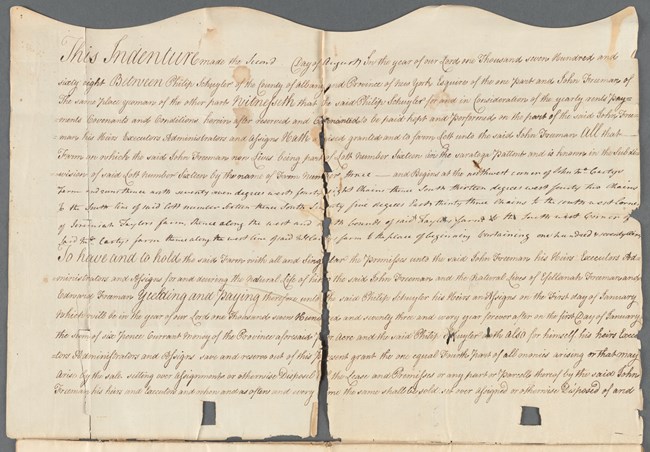 This Indenture made the Second Day of August In the year of our Lord one Thousand seven Hundred and
sixty eight Between Philip Schuyler of the County of albany and Province of New York Esquire of the one part and John Freeman of
The same place yeoman of the other part Witnesseth that the said Philip Schuyler for and in Consideration of the yearly rents Pay
ments Covenants and Conditions herein after reserved and to be paid kept and Performed on the part of the said John Free
man his Heirs Executors Administrators and assigns Hath granted and to farm Lett unto the said John Freeman All that
Farm on which the said John Freeman now Lives being part of Lott Number Sixteen in the saratoga Pattent and is known in the Subdi
vision of said Lott number Sixteen by the name of Farm Number three and Begins at the northwest corner of John Mc Cartys
Farm and runs thence north seventy nine degrees west forty eight Chains thence South thirteen degrees west forty two Chains
to the South line of said lott number Sixteen thence South Seventy five degrees East thirty three Chains to the south west Corner
of Jeremiah Taylors farm thence along the west and north bounds of said Taylors farm to the South west Corner of
said Mc Cartys farm thence along the west line of said farm to the place of beginning Containing one hundred & seventy
To have and to hold the said Farm with all and Singular the Premises unto the said John Freeman his Heirs Executors Ad
ministrators and Assigns for and dureing the Natural Life of him the said John Freeman and the Natural Lives of Freeman and
Edward Freeman Yielding and Paying therefore unto the said Philip Schuyler his Heirs and Assigns on the First day of January
which will be in the year of our Lord one Thousand seven Hundred and seventy and every year forever after on the first Day of January
the sum of six Pence Current money of the Province aforesaid and the said Philip Schuyler doth also for himself his heirs Execu
tors Administrators and Assigns save and reserve out of this present grant the one equal Fourth Part of all monies arising or that may
Arise by the sale setting over assignments or otherwise Disposal of the Lease and Premises or any part or parcell thereof by the said John
Freeman his heirs and Executors and when and as often and every time the same shall be sold set over assigned or otherwise Disposed of and